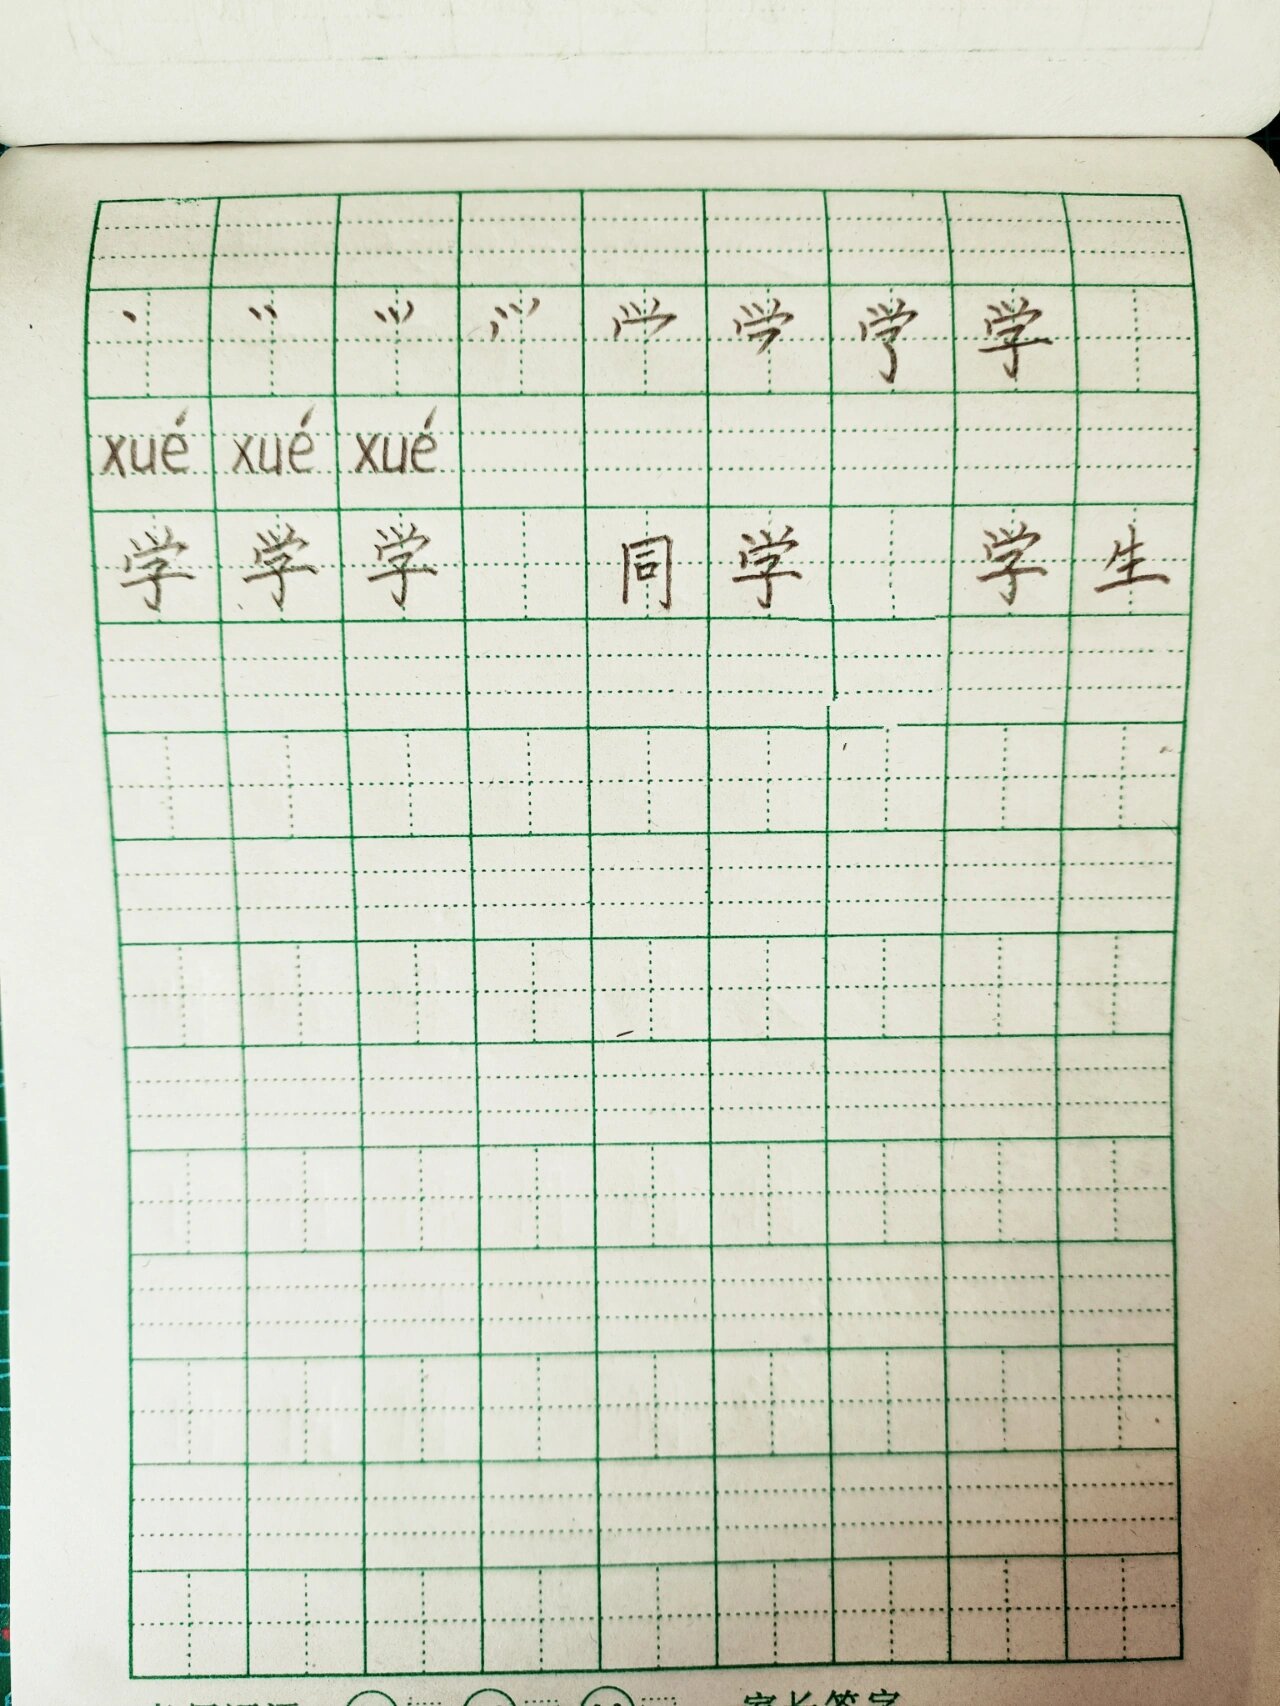 学
xué xué xué
学 学 学 同 学 学 生
家长签字